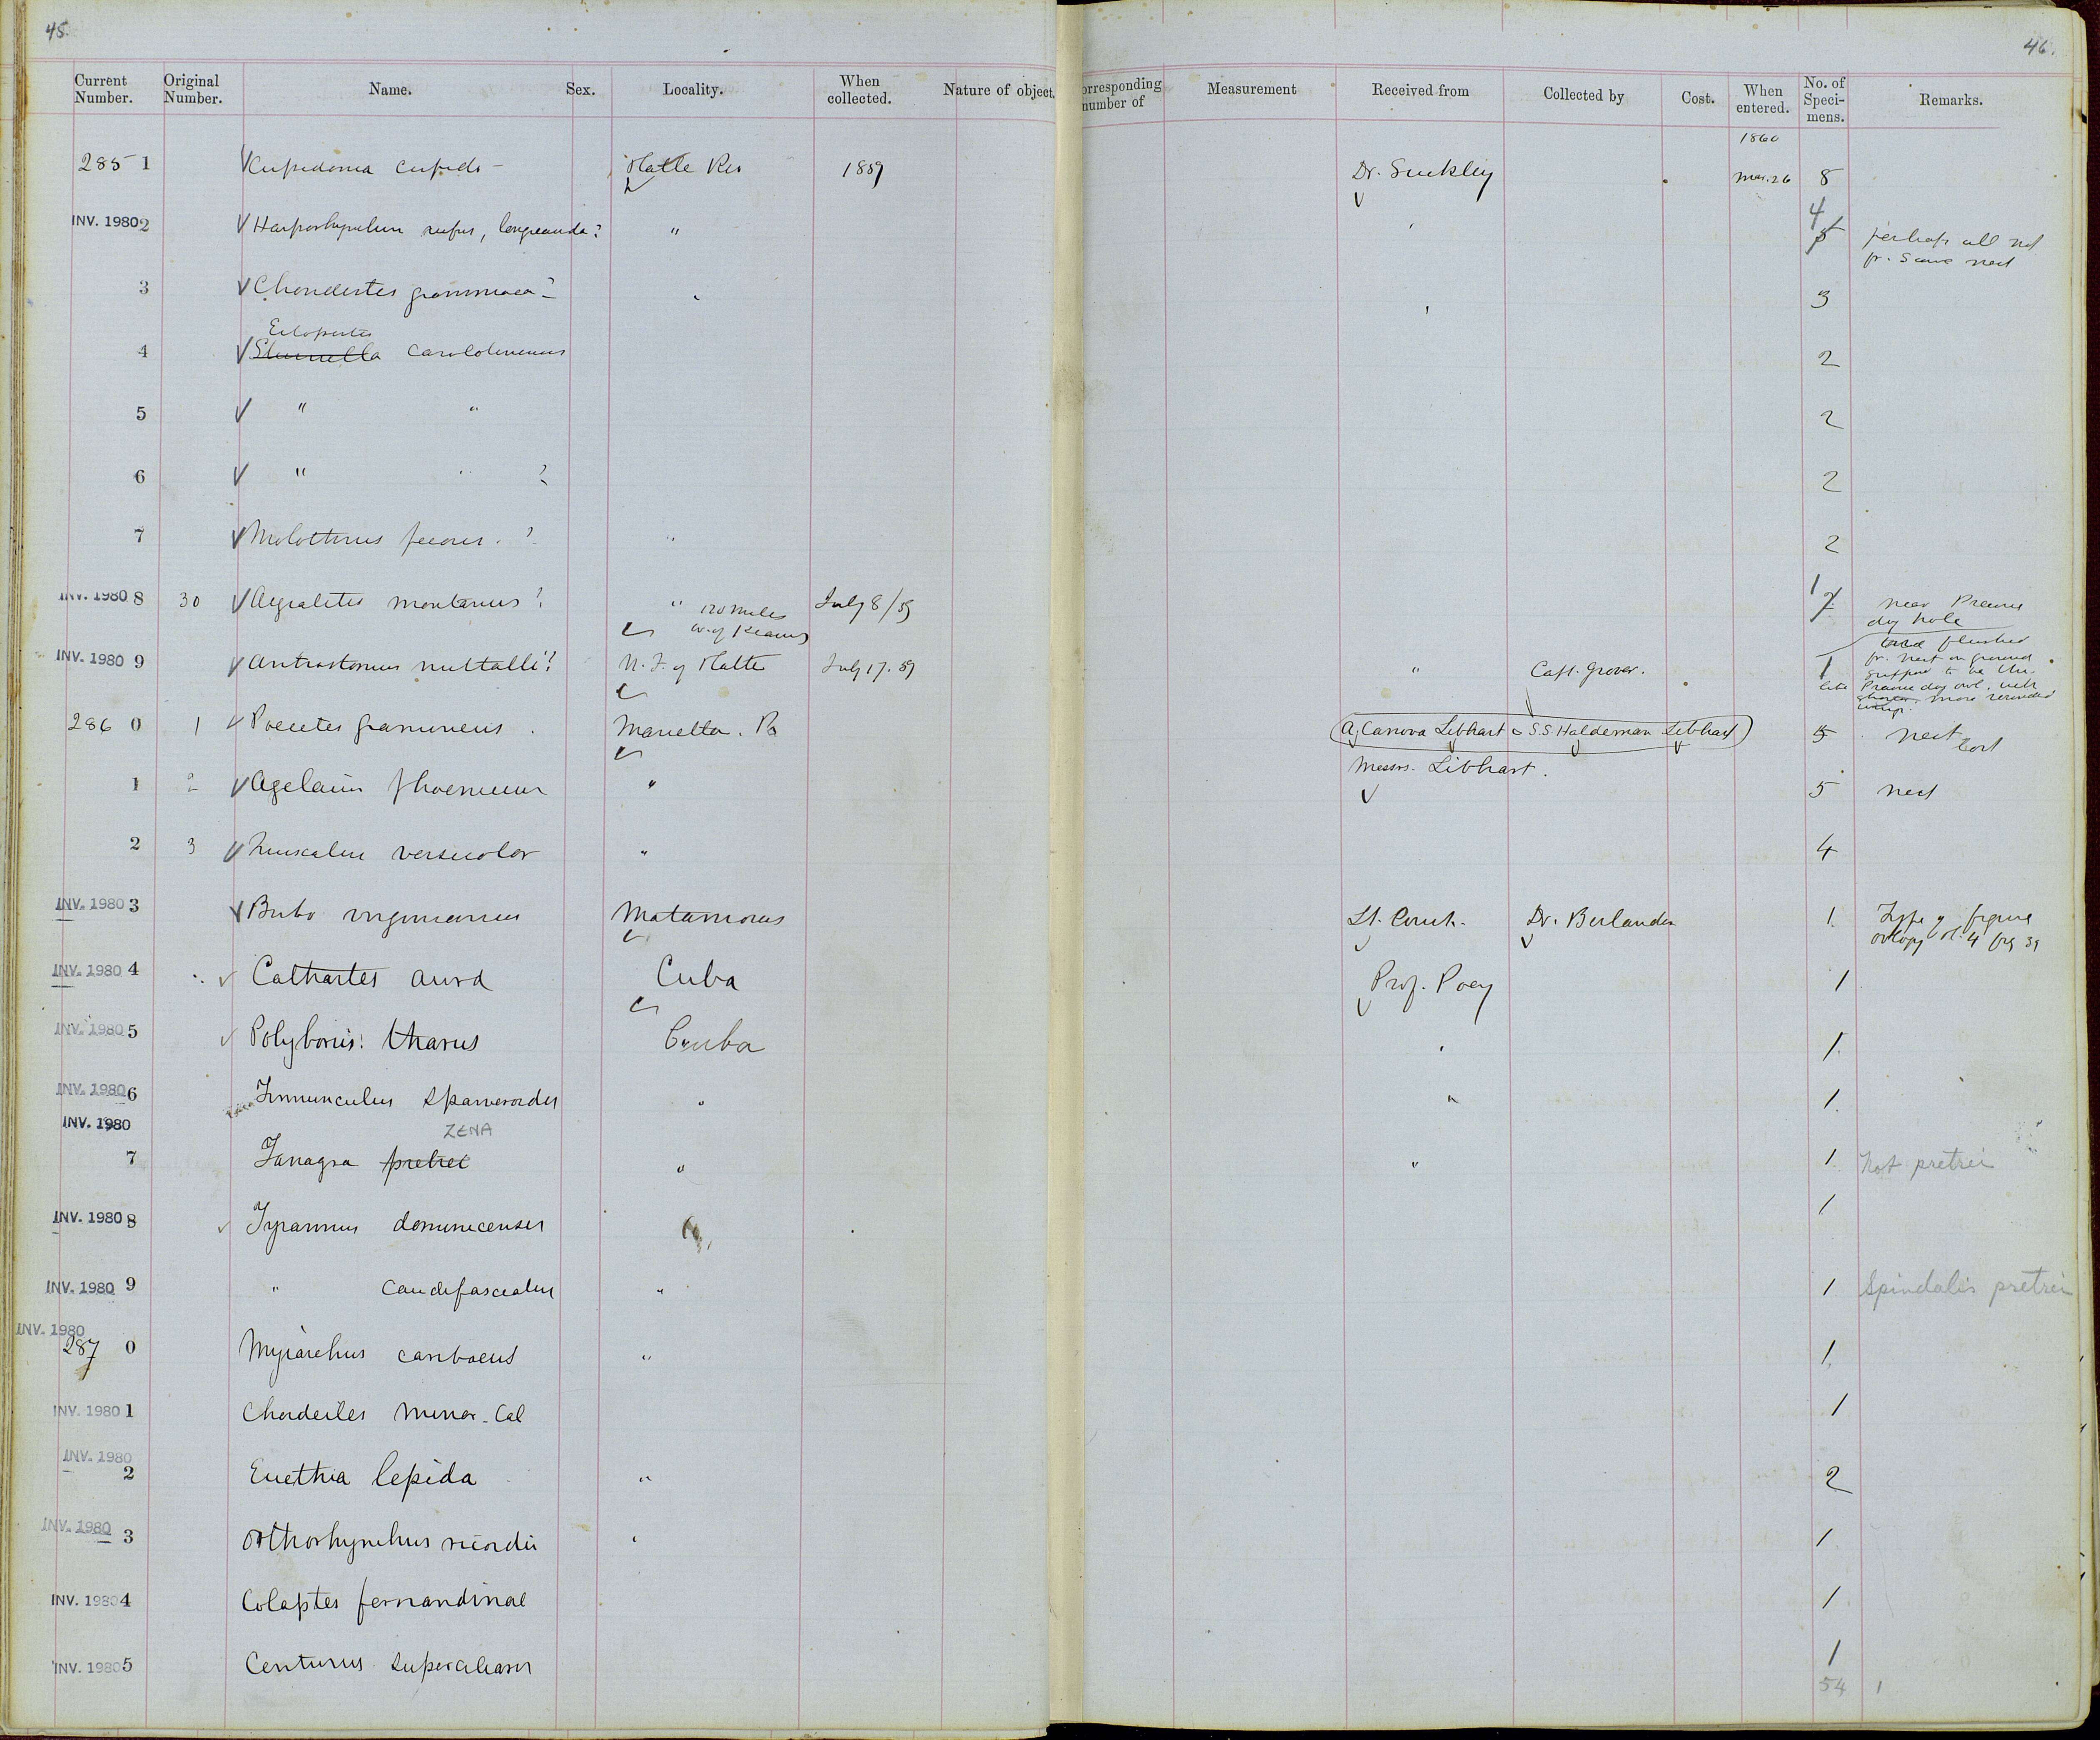 45.
46.
Current Number. Original Number. Name. Sex. Locality. When collected. Nature of object. orresponding number of Measurement Received from Collected by Cost. When entered. No. of Speci- mens. Remarks.
1860
285 1 Cupidonia cupido - Platte Riv 1859 Dr. Suckley Mar. 26 8
INV. 1980 2 Harporhynchus rufus, longicauda? " 4 5 perhaps all not
fr. same nest
3 Chondestes grammaca? 3
4 Sturnella 2
5 " " 2
6 " " ? 2
7 Molothrus pecoris. ? " 2
INV. 1980 8 30 Aegialitis montanus? " 120 miles July 8/59 1 2 near Prairie
W. of Kearny dog hole
INV. 1980 9 Antrostomus nuttalli? N. F. of Platte July 17. 59 " Capt. Grover. 1 bird flushed
fr. nest on ground
Prairie dog owl, with
more rounded
wings.
286 0 1 Poecetes gramineus. Marietta. Pa A. Canova Libhart & S.S. Haldeman Libhart 5 nest lost
Messrs. Libhart.
1 2 Agelaius phoeniceus " 5 nest
2 3 Quiscalus versicolor " 4
INV. 1980 3 Bubo virginianus Matamoras Lt. Couch. Dr. Berlandier 1. Type of figure
INV. 1980 4 Cathartes aura Cuba Prof. Poey 1
INV. 1980 5 Polyborus tharus Cuba " 1.
INV. 1980 6 Tinnunculus sparveroides " " 1.
INV. 1980
ZENA
7 Tanagra pretrei " " 1. Not pretrei
INV. 1980 8 Tyrannus dominicensis 1
INV. 1980 9 " caudifasciatus " 1 Spindalis pretrei
INV. 1980
287 0 Myiarchus caribaeus " 1.
INV. 1980 1 Chordeiles minor. Cab 1
INV. 1980
2 Euethia lepida " 2
INV. 1980 3 Orthorhynchus ricordii " 1
INV. 1980 4 Colaptes fernandinae 1
INV. 1980 5 Centurus superciliaris 1
54 1